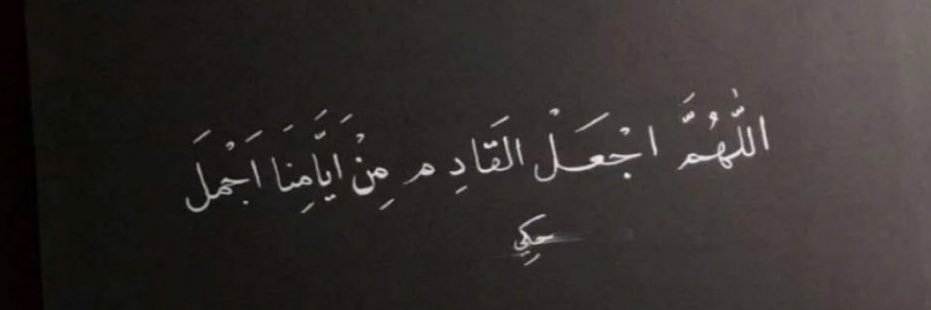 اللّٰهُمَّ اجْعَلْ القَادِم مِنْ اَيَّامِنَا اَجْمَلَ